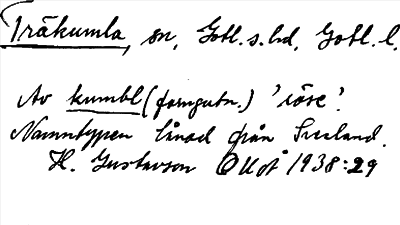 Träkumla, sn, Gotl. s. hd, Gotl. l.
Av kumbl (forngutn.) 'röse'.
Namntypen lånad från Sveland.
H. Gustavson 1938:29